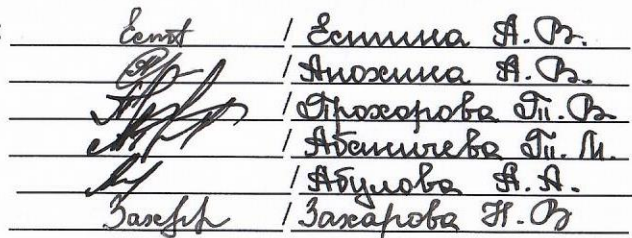 / Есмина А. В.
/ Анохина А. В.
/ Прохарова Т. В
/ Абаничева Т. М.
/ Абулова А. А.
/ Захарова Н. В